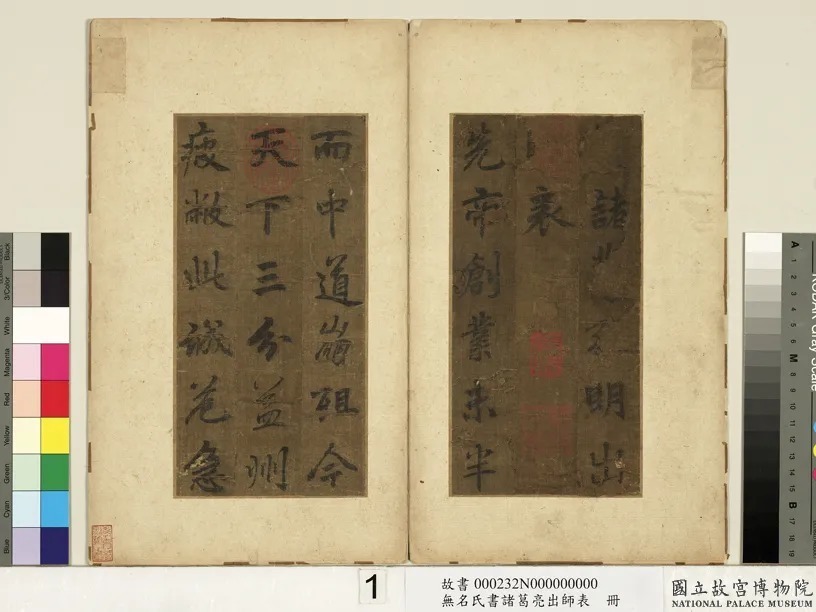 諸葛孔明出
表
先帝創業未半
而中道崩殂今
天下三分益州
疲敝此誠危急
1
故書 000232N000000000
無名氏書諸葛亮出師表 冊
國立故宮博物院
NATIONAL PALACE MUSEUM
Black
3/Color
White
Magenta
Red
Yellow
Green
Cyan
Blue
A
1
2
3
4
5
6
M
8
9
10
11
12
13
14
15
B
17
18
19